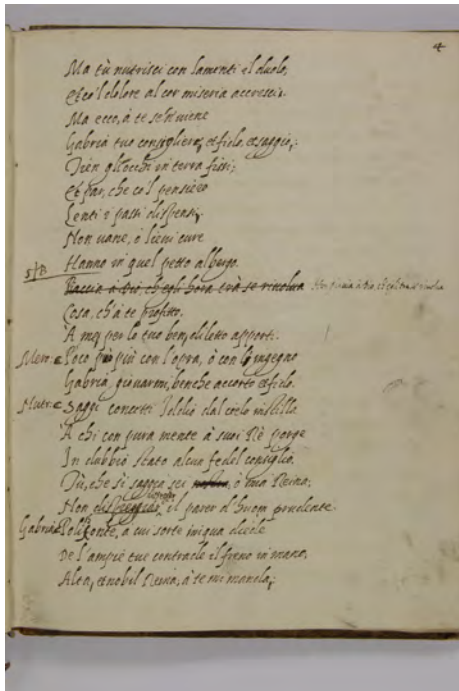 4
Ma tù nutrisci con lamenti il duolo,
Et co'l dolore al cor miseria accresci.
Ma ecco, à te se'n viene
Gabria tuo consigliero, et fido, et saggio,
Tien gl'occhi in terra fissi;
Et par, che co'l pensiero
Lenti i passi dispensi,
Non vane, ò lievi cure
Hanno in quel petto albergo.
Faccia à Dio, ch'egli hora trà se rivolva
Cosa, ch'à te profitto,
À me, per lo tuo ben, diletto apporti.
Mero. Poco può più con l'opra, ò con l'ingegno
Gabria, giovarmi, benche accorto et fido.
Nutri. Saggi concetti Iddio dal cielo instilla
À chi con pura mente à suoi Rè porge
In dubbio stato alcun fedel consiglio.
Tù, che sì saggia sei, ò mia Reina,
Non il parer d'huom prudente.
Gabria. Polifonte, à cui sorte iniqua diede
De l'ampie tue contrade il freno in mano,
Alta, et nobil Reina, à te mi manda,